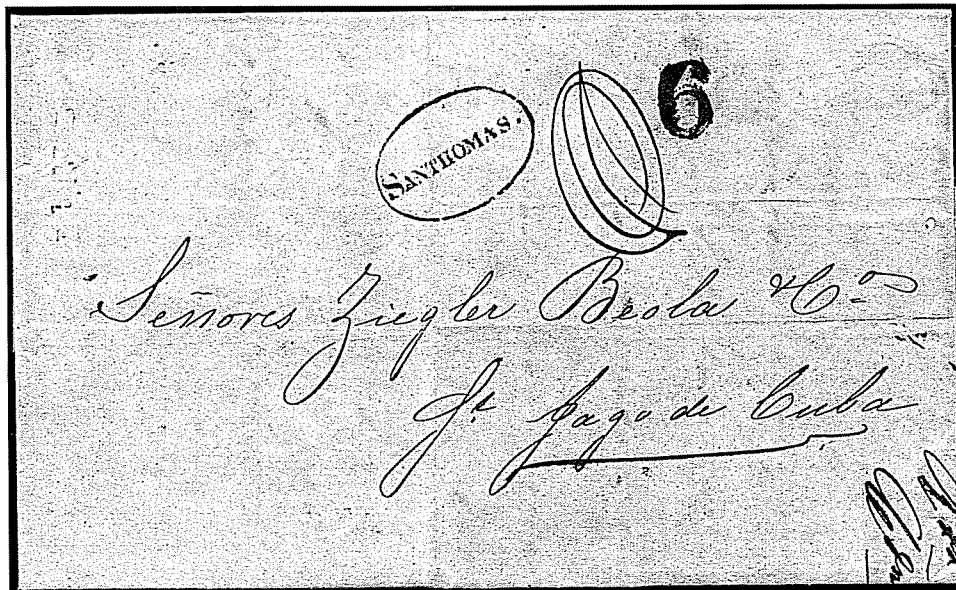 SANTHOMAS.
6
Señores Ziegler Beola & Co
St Jago de Cuba